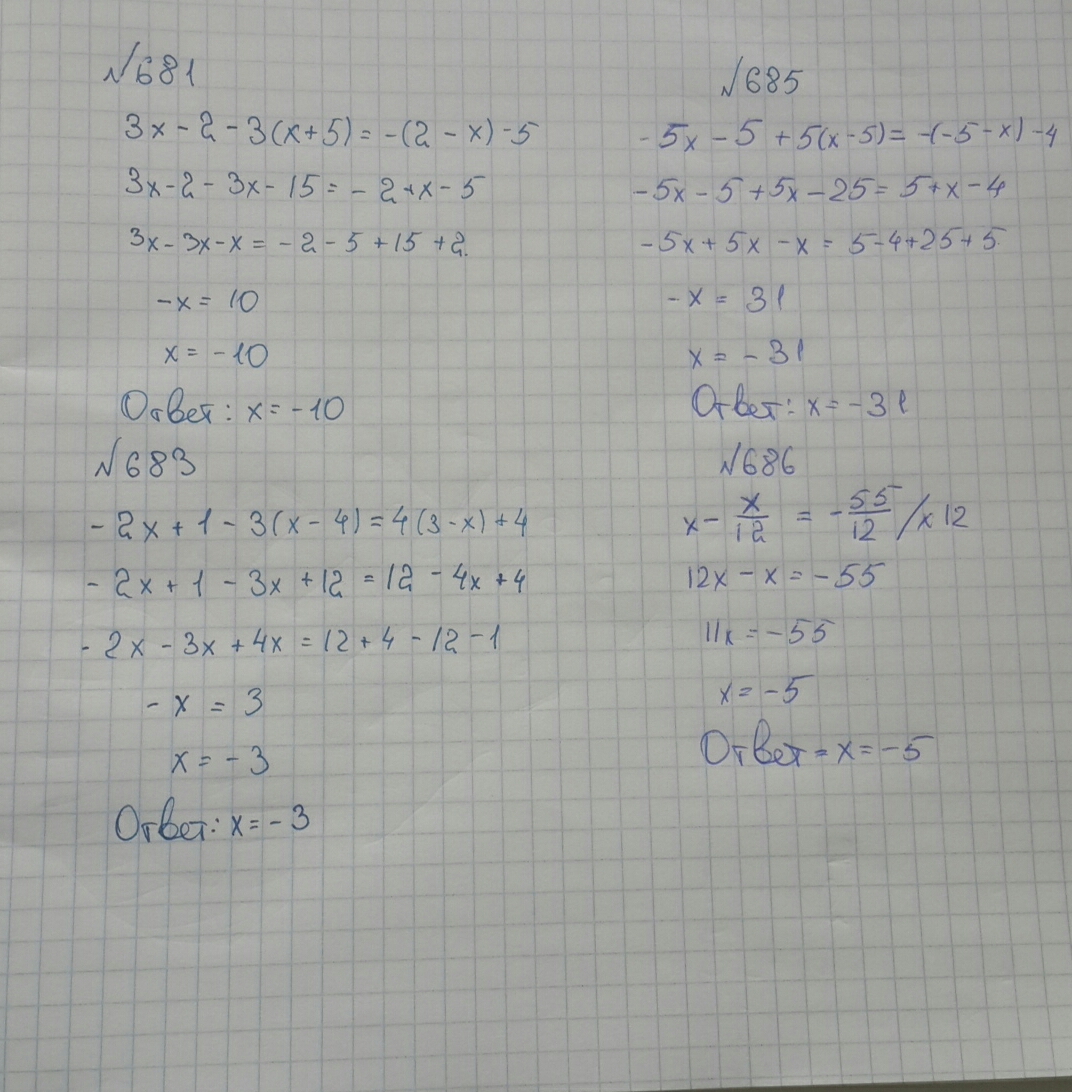 №681
3x - 2 - 3(x+5) = -(2 - x) - 5
3x - 2 - 3x - 15 = - 2 + x - 5
3x - 3x - x = - 2 - 5 + 15 + 2.
-x = 10
x = -10
Ответ: x = -10
№683
- 2x + 1 - 3(x - 4) = 4(3 - x) + 4
- 2x + 1 - 3x + 12 = 12 - 4x + 4
- 2x - 3x + 4x = 12 + 4 - 12 - 1
- x = 3
x = - 3
Ответ: x = - 3
№685
- 5x - 5 + 5(x - 5) = -(-5 - x) - 4
-5x - 5 + 5x - 25 = 5 + x - 4
-5x + 5x - x = 5 - 4 + 25 + 5
- x = 31
x = - 31
Ответ: x = -31
№686
x - x/12 = - 55/12 / x 12
12x - x = -55
11x = -55
x = -5
Ответ = x = -5